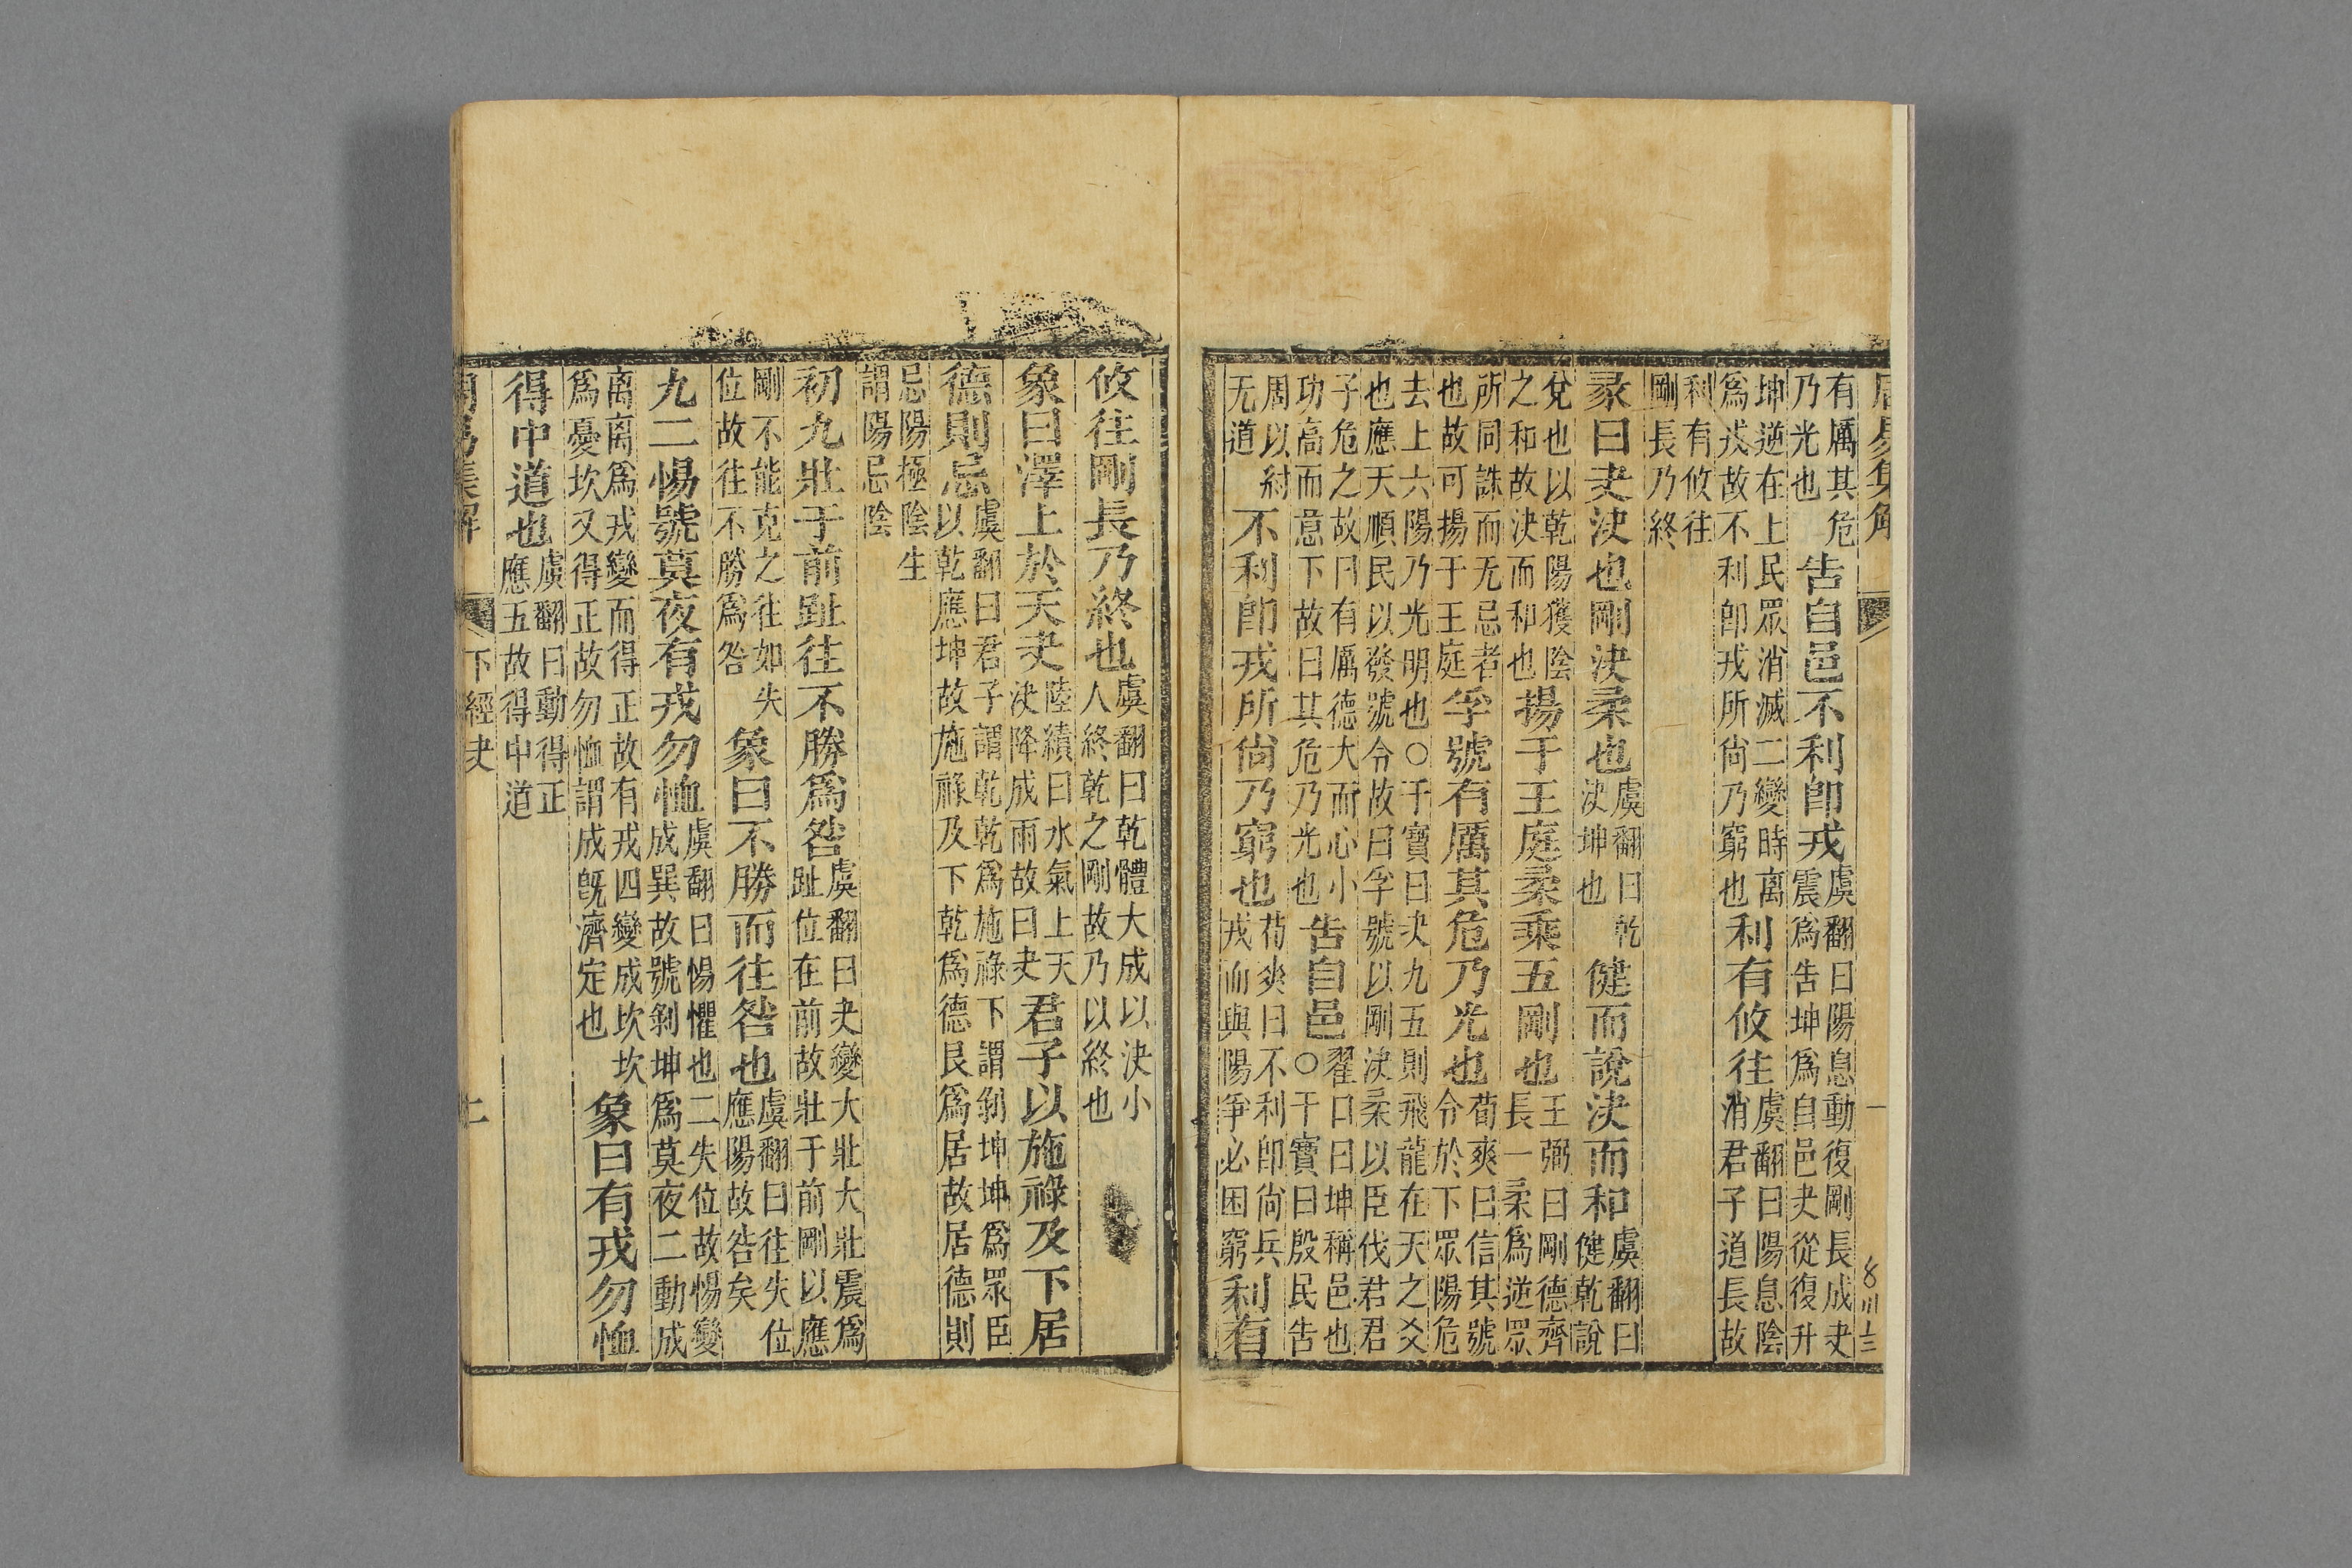 周易集解
有厲其危
乃光也
告自邑不利卽戎
虞翻曰陽息動復剛長成夬
震爲告坤爲自邑夬從復升
坤逆在上民眾消滅二變時离
爲戎故不利卽戎所尙乃窮也
利有攸往
虞翻曰陽息陰
消君子道長故
利有攸往
剛長乃終
彖曰夬決也剛決柔也
虞翻曰乾
決坤也
健而說決而和
虞翻曰
健乾說
兌也以乾陽獲陰
之和故決而和也
揚于王庭柔乘五剛也
王弼曰剛德齊
長一柔爲逆眾
所同誅而无忌者
也故可揚于王庭
孚號有厲其危乃光也
荀爽曰信其號
令於下眾陽危
去上六陽乃光明也○干寶曰夬九五則飛龍在天之爻
也應天順民以發號令故曰孚號以剛決柔以臣伐君君
子危之故曰有厲德大而心小
功高而意下故曰其危乃光也
告自邑
翟口曰坤稱邑也
○干寶曰殷民告
周以紂
无道
不利卽戎所尙乃窮也
荀爽曰不利卽尙兵
戎而與陽爭必困窮
利有
攸往剛長乃終也
虞翻曰乾體大成以決小
人終乾之剛故乃以終也
象曰澤上於天夬
陸績曰水氣上天
決降成雨故曰夬
君子以施祿及下居
德則忌
虞翻曰君子謂乾乾爲施祿下謂剝坤坤爲眾臣
以乾應坤故施祿及下乾爲德艮爲居故居德則
忌陽極陰生
謂陽忌陰
初九壯于前趾往不勝爲咎
虞翻曰夬變大壯大壯震爲
趾位在前故壯于前剛以應
剛不能克之往如失
位故往不勝爲咎
象曰不勝而往咎也
虞翻曰往失位
應陽故咎矣
九二惕號莫夜有戎勿恤
虞翻曰惕懼也二失位故惕變
成巽故號剝坤爲莫夜二動成
离离爲戎變而得正故有戎四變成坎坎
爲憂坎又得正故勿恤謂成旣濟定也
象曰有戎勿恤
得中道也
虞翻曰動得正
應五故得中道
周易集解
下經夬